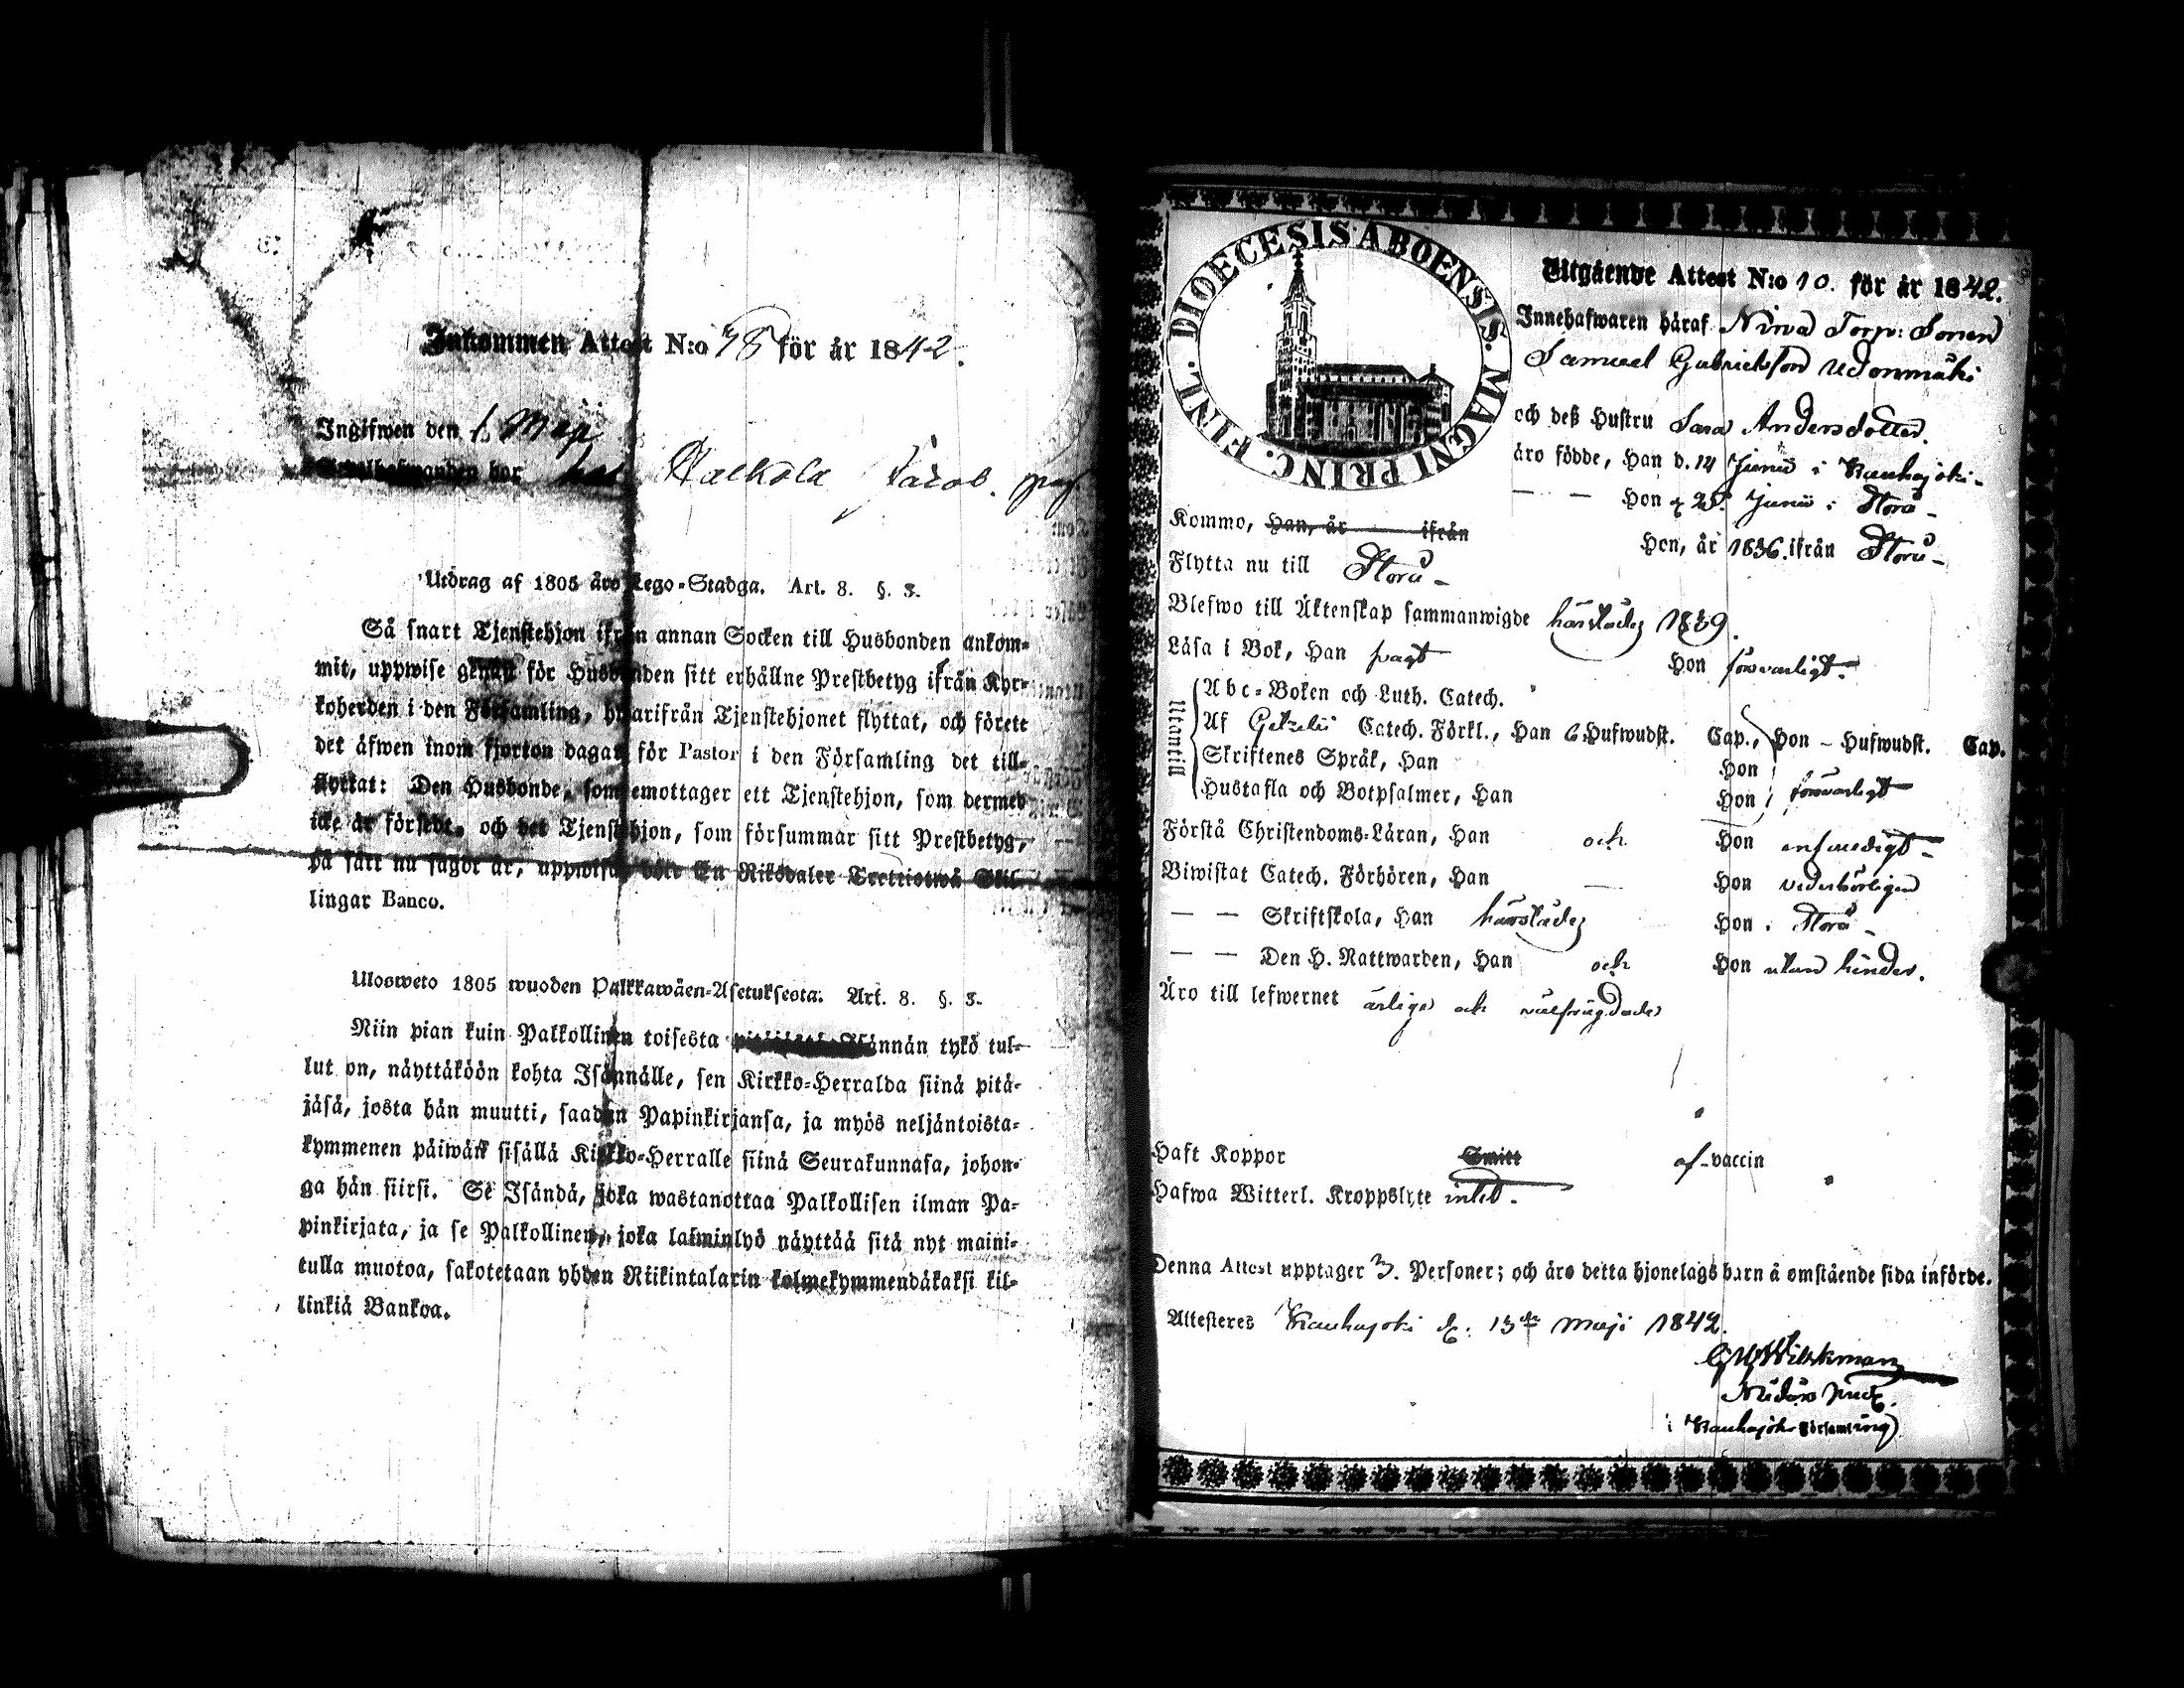 Inkommen Attest N:o 78 för år 1842.
Ingifwen den 1 Maji
har Jacob.
Utdrag af 1805 års Lego-Stadga. Art. 8. §. 3.
Så snart Tjenstehjon ifrån annan Socken till Husbonden ankom-
mit, uppwise genast för Husbonden sitt erhållne Prestbetyg ifrån Kyr-
koherden i den Församling, hwarifrån Tjenstehjonet flyttat, och förete
det äfwen inom fjorton dagar för Pastor i den Församling det till-
flyttat: Den Husbonde, som emottager ett Tjenstehjon, som dermed
icke är försedt, och det Tjenstehjon, som försummar sitt Prestbetyg,
på sätt nu sagdt är, uppwisa, böte En Riksdaler Trettiotwå Skil-
lingar Banco.
Ulosweto 1805 wuoden Palkkawäen-Asetuksesta. Art. 8. §. 3.
Niin pian kuin Palkollinen toisesta pitäjästä Isännän tykö tul-
lut on, näyttäköön kohta Isännälle, sen Kirkko-Herralda siinä pitä-
jäsä, josta hän muutti, saadun Papinkirjansa, ja myös neljäntoista-
kymmenen päiwän sisällä Kirkko-Herralle siinä Seurakunnasa, johon-
ga hän siirsi. Se Isändä, joka wastanottaa Palkollisen ilman Pa-
pinkirjata, ja se Palkollinen, joka laiminlyö näyttää sitä nyt maini-
tulla muotoa, sakotetaan yhden Riikintalarin kolmekymmendäkaksi kil-
linkiä Bankoa.
DIOECESIS ABOENSIS. MAGNI PRINC. FINL.
Utgående Attest N:o 10. för år 1842.
Innehafwaren häraf Torp: Sonen
Samuel Gabrielsson
och deß Hustru Sara Andersdotter.
äro födde, Han d. 14 Junii i Kauhajoki.
— — Hon d 25. Junii i Storå
Kommo, Han, år ifrån Hon, år 1836. ifrån Storå
Flytta nu till Storå
Blefwo till Äktenskap sammanwigde härstädes 1839.
Läsa i Bok, Han svagt Hon försvarligt.
Utantill
Abc-Boken och Luth. Catech.
Af Gezelii Catech. Förkl., Han 6 Hufwudst. Cap., Hon – Hufwudst. Cap.
Skriftenes Språk, Han Hon
Hustafla och Botpsalmer, Han Hon försvarligt
Förstå Christendoms-Läran, Han och Hon enfaldigt
Biwistat Catech. Förhören, Han — Hon vederbörligen
— — Skriftskola, Han härstädes Hon i Storå
— — Den H. Nattwarden, Han och Hon utan hinder.
Äro till lefwernet ärliga och välfrägdade
Haft Koppor Smitt af vaccin
Hafwa Witterl. Kroppslyte intet.
Denna Attest upptager 3. Personer; och äro detta hjonelags barn å omstående sida införde.
Attesteres Kauhajoki d. 13de Maji 1842.
i Kauhajoki Församling